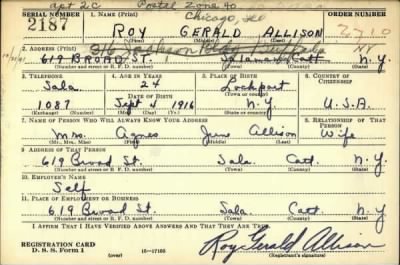 apt 2C Postal Zone 40
Chicago, Ill
SERIAL NUMBER 1. NAME (Print) ORDER NUMBER
2187 ROY GERALD ALLISON 2710
(First) (Middle) (Last)
316 Jackson Bldg Buffalo NY
2. ADDRESS (Print)
619 BROAD ST. Salamanca Catt N.Y.
(Number and street or R. F. D. number) (Town) (County) (State)
3. TELEPHONE 4. AGE IN YEARS 5. PLACE OF BIRTH 6. COUNTRY OF CITIZENSHIP
Sala 24 Lockport
DATE OF BIRTH (Town or county)
1087 Sept 4 1916 N.Y. U.S.A.
(Exchange) (Number) (Mo.) (Day) (Yr.) (State or country)
7. NAME OF PERSON WHO WILL ALWAYS KNOW YOUR ADDRESS 8. RELATIONSHIP OF THAT PERSON
Mrs. Agnes June Allison Wife
(Mr., Mrs., Miss) (First) (Middle) (Last)
9. ADDRESS OF THAT PERSON
619 Broad St. Sala. Catt. N.Y.
(Number and street or R. F. D. number) (Town) (County) (State)
10. EMPLOYER'S NAME
Self
11. PLACE OF EMPLOYMENT OR BUSINESS
619 Broad St. Sala. Catt. N.Y.
(Number and street or R. F. D. number) (Town) (County) (State)
I AFFIRM THAT I HAVE VERIFIED ABOVE ANSWERS AND THAT THEY ARE TRUE.
REGISTRATION CARD
D. S. S. Form 1 16-17105 Roy Gerald Allison
(over) (Registrant's signature)